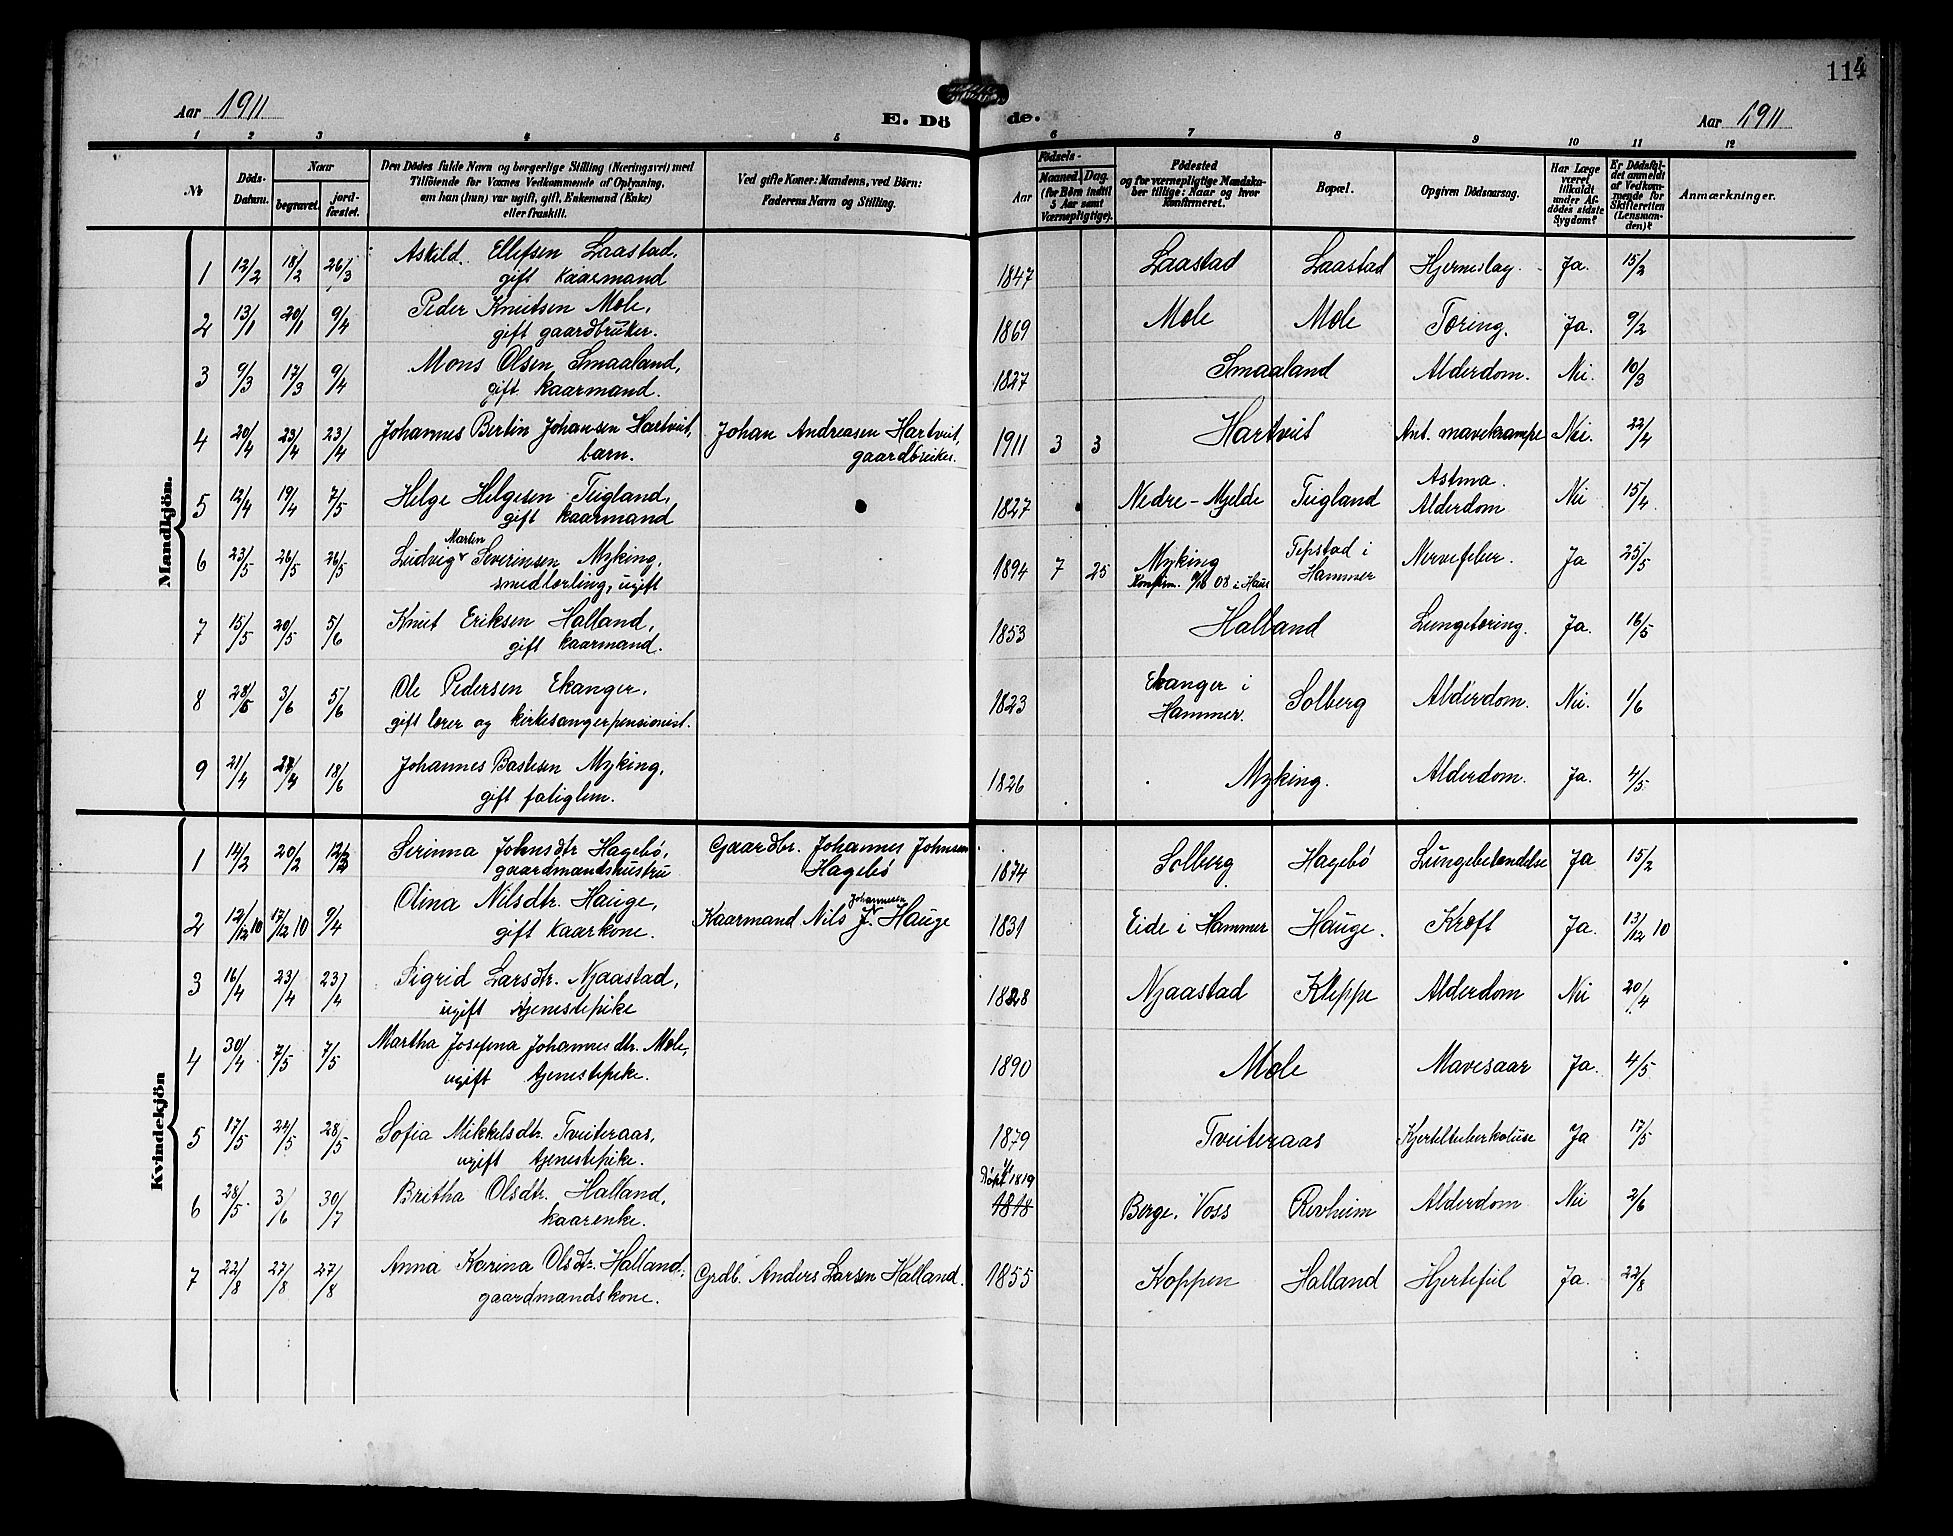 114
Aar 1911
E. Dö de.
Aar 1911
1 2 3 4 5 6 7 8 9 10 11 12
№
Döds-Datum.
Naar
begravet.
jord-fæstet.
Den Dödes fulde Navn og borgerlige Stilling (Næringsvei) med
Tilföiende for Voxnes Vedkommende af Oplysning,
om han (hun) var ugift, gift, Enkemand (Enke)
eller fraskilt.
Ved gifte Koner: Mandens, ved Börn:
Faderens Navn og Stilling.
Födsels-
Aar
Maaned. Dag.
(for Börn indtil
5 Aar samt
Værnepligtige).
Födested
og for værnepligtige Mandska-
ber tillige: Naar og hvor
Konfirmeret.
Bopæl.
Opgiven Dödsaarsag.
Har Læge
været
tilkaldt
under Af-
dödes sidste
Sygdom?
Er Dödsfal-
det anmeldt
af Vedkom-
mende for
Skifteretten
(Lensman-
den)?
Anmærkninger.
Mandkjön.
1 12/2 18/2 26/3 Askild Ellefsen Laastad, 1847 Laastad Laastad Hjerneslag. Ja. 15/2
gift kaarmand
2 13/1 20/1 9/4 Peder Knutsen Mole, 1869 Mole Mole Tæring. Ja. 9/2
gift gaardbruker.
3 9/3 17/3 9/4 Mons Olsen Smaaland, 1827 Smaaland Alderdom. Nei. 10/3
gift kaarmand.
4 20/4 23/4 23/4 Johannes Bertin Johansen Hartveit, Johan Andreasen Hartveit, 1911 3 3 Hartveit Ant. mavekrampe Nei. 22/4
barn. gaardbruker.
5 12/4 19/4 7/5 Helge Helgesen Teigland, 1827 Nedre-Mjelde Teigland Astma. Alderdom Nei 15/4
gift kaarmand
6 23/5 26/5 26/5 Ludvig Martin Severinsen Myking, 1894 7 25 Myking Tepstad i Hammer Nervefeber. Ja 25/5
smedlærling, ugift Konfirm. 08 i Haus
7 15/5 20/5 5/6 Knut Eriksen Halland, 1853 Halland Lungetæring. Ja. 16/5
gift kaarmand.
8 28/5 3/6 5/6 Ole Pedersen Ekanger, 1823 Ekanger i Hammer. Solberg Alderdom. Nei. 1/6
gift lærer og kirkesangerpensionist.
9 21/4 27/4 18/6 Johannes Bastesen Myking, 1826 Myking. Alderdom. Ja. 4/5
gift fatiglem.
Kvindekjön
1 14/2 20/2 12/3 Serinna Johnsdtr Hagebö, Gaardbr. Johannes Johnsen Hagebö 1874 Solberg Hagebö Lungebetændelse Ja 15/2
gaardmandshustru
2 12/12 10 17/12 10 9/4 Olina Nilsdtr. Hauge, Kaarmand Nils J. Johannesen Hauge 1831 Eide i Hammer Hauge. Kræft Ja. 13/12 10
gift kaarkone.
3 16/4 23/4 23/4 Sigrid Larsdtr. Njaastad, 1828 Njaastad Kleppe Alderdom Nei 20/4
ugift tjenestepike
4 30/4 7/5 7/5 Martha Josefina Johannesdtr. Mole, 1890 Mole Mavesaar Ja. 4/5
ugift tjenestepike.
5 17/5 24/5 28/5 Sofia Mikkelsdtr. Tveiteraas, 1879 Tveiteraas Kjerteltuberkulose Ja 17/5
ugift tjenestepike.
6 28/5 3/6 30/7 Britha Olsdtr. Halland, Döpt 1819 1818 Berge, Voss Revheim Alderdom Nei 2/6
kaarenke.
7 22/8 27/8 27/8 Anna Karina Olsdtr. Halland, Grdb. Anders Larsen Halland. 1855 Koppen Halland Hjertefeil Ja. 22/8
gaardmandskone.